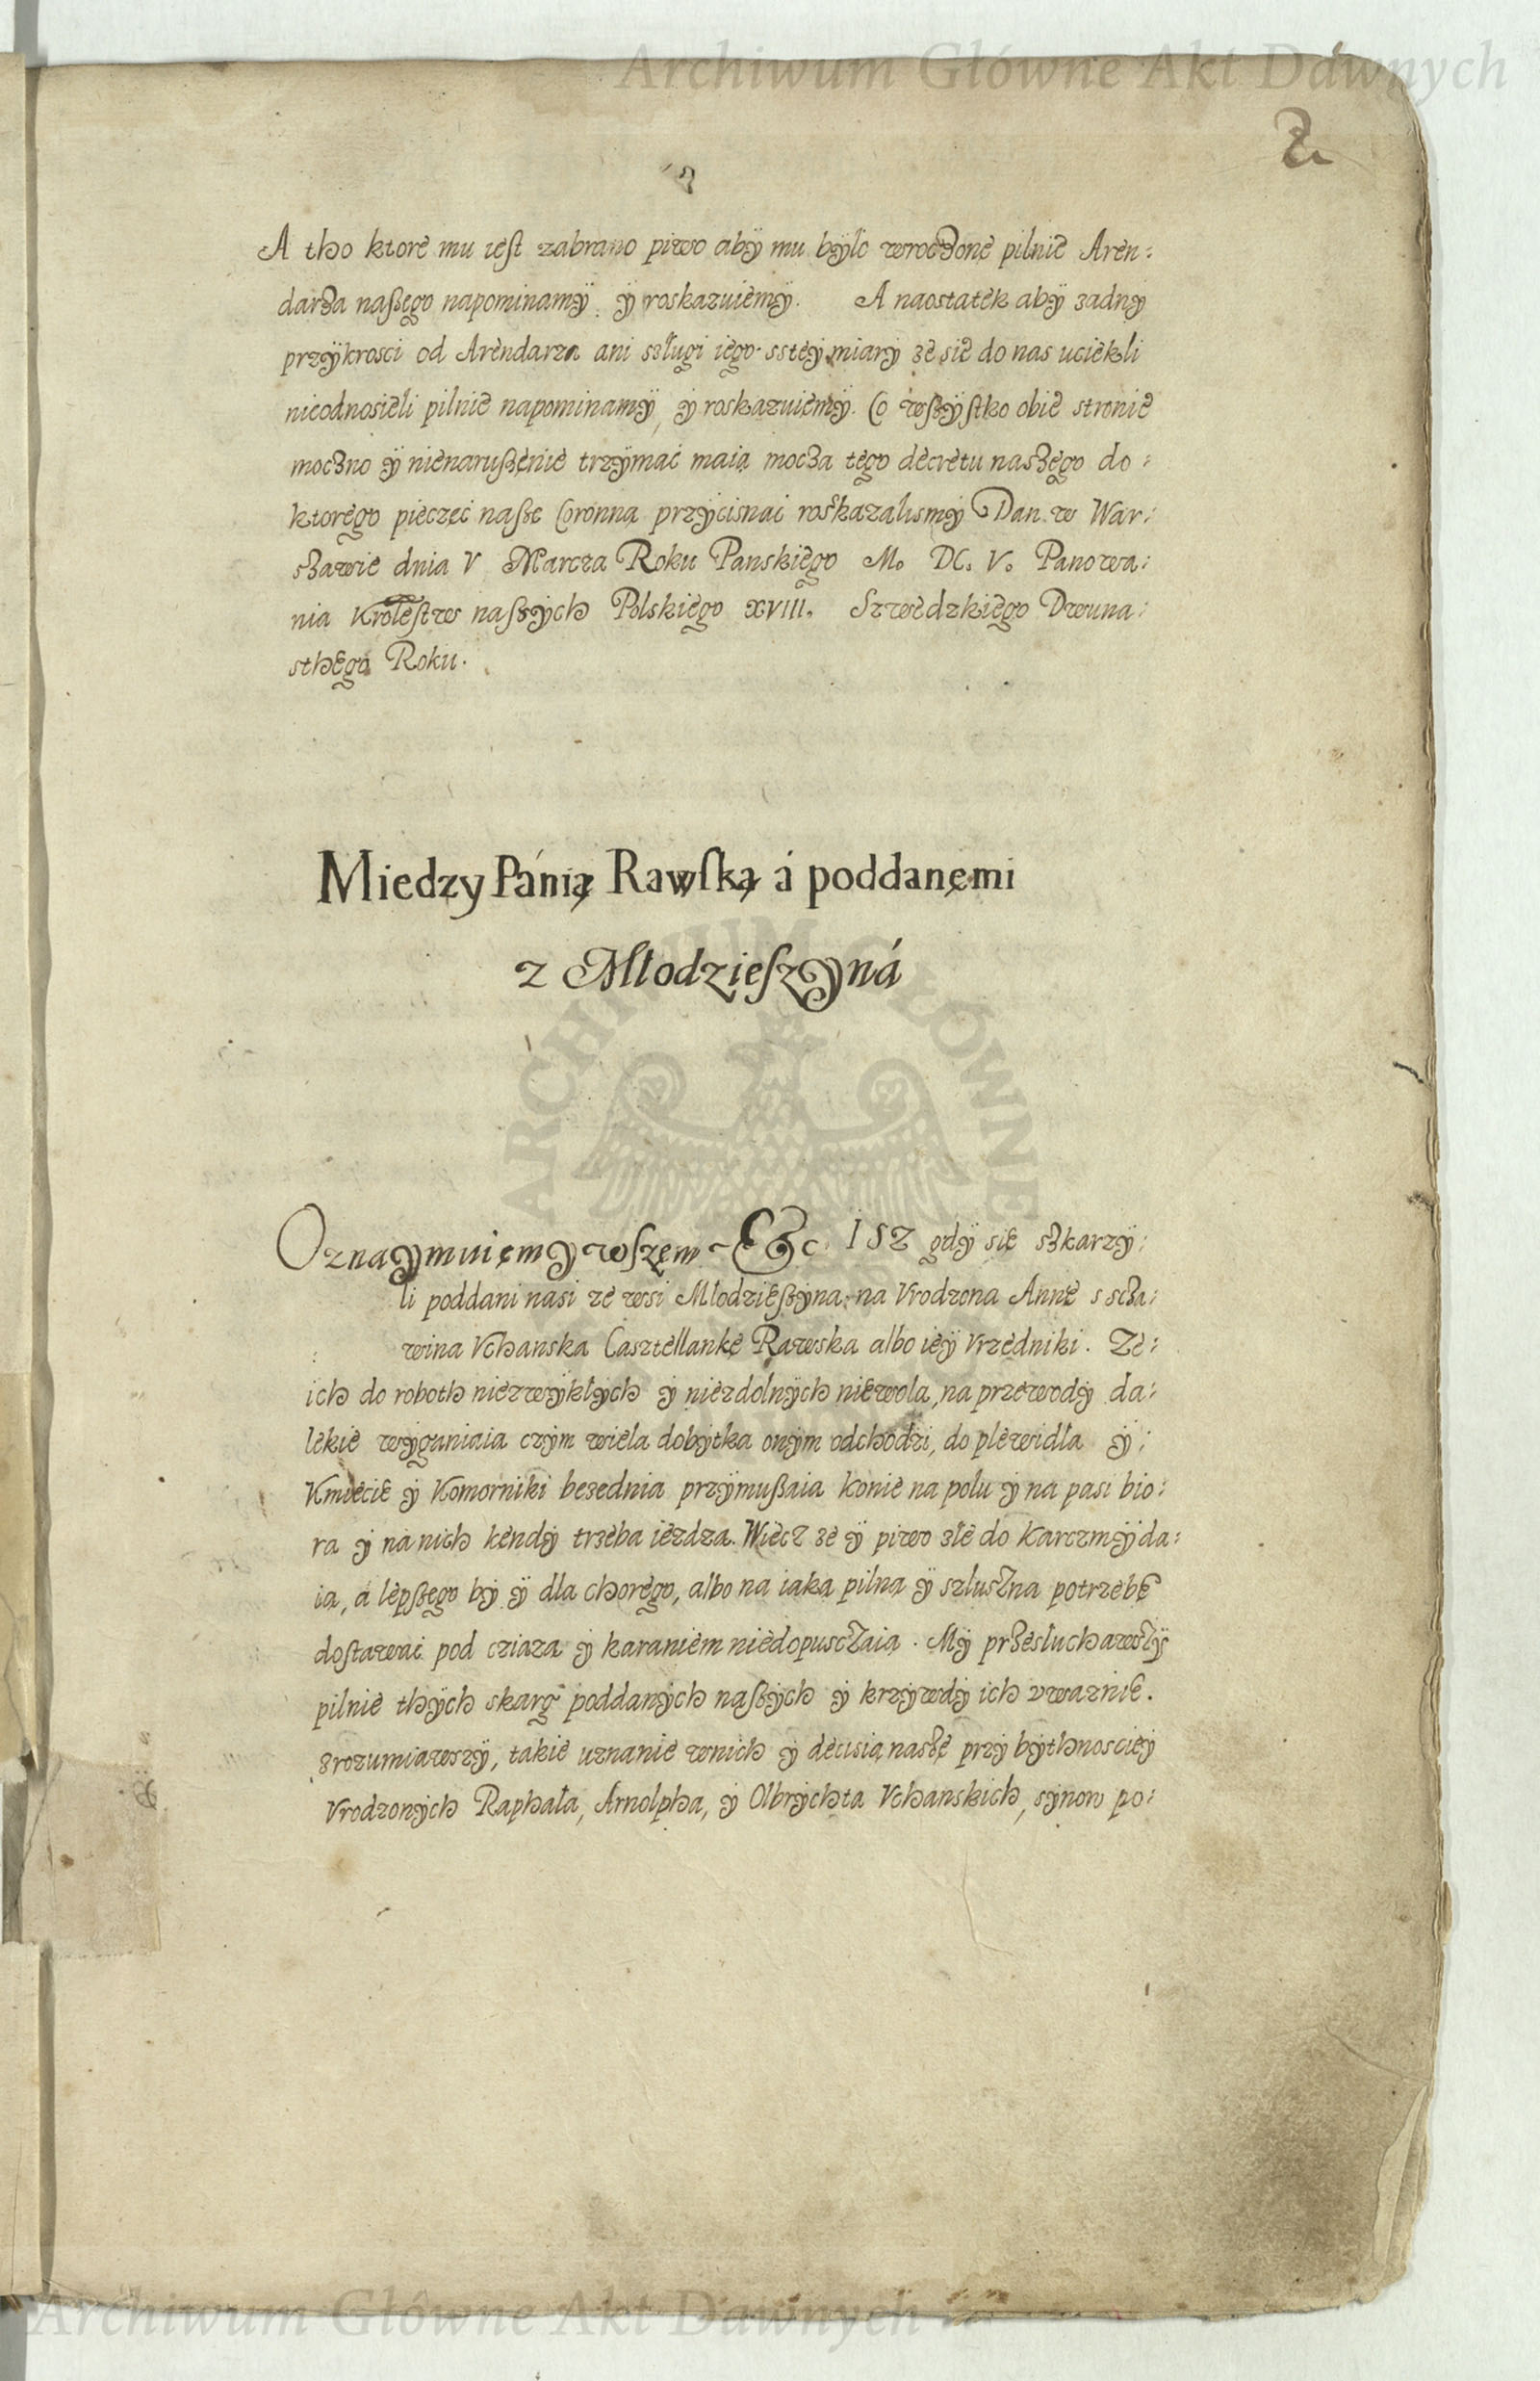 Archiwum Główne Akt Dawnych
2
A tho ktore mu iest zabrano piwo abÿ mu bÿlo wroczone pilnie Aren:
darza naßego napominamÿ ÿ roskazuiemÿ. A naostatek abÿ zadnÿ
przÿkrosci od Arendarza ani szługi iego ssteÿ miarÿ ze sie do nas uciekli
nieodnosieli pilnie napominamÿ, ÿ roskazuiemÿ. Co wsßÿstko obie stronie
moczno ÿ nienarußenie trzÿmać maią mocza tego decretu naszego do:
ktorego pieczęć naße Coronną przÿcisnać roskazalismÿ Dan w War:
szawie dnia V Marcza Roku Panskiego M. DC. V. Panowa:
nia Krolestw naßÿch Polskiego XVIII. Szwedzkiego Dwuna:
sthego Roku.
Miedzy Pánią Rawską á poddanemi
z Młodzieszÿná
Oznaÿmuiemÿ wszem &c. ISZ gdÿ sie szkarzÿ:
li poddani nasi ze wsi Młodzießÿna na Vrodzona Anne s scza:
wina Vchanska Casztellanke Rawska albo ieÿ Vrzedniki. Ze:
ich do roboth niezwÿkłÿch ÿ niezdolnÿch niewola, na przewodÿ da:
lekie wÿganiaia czÿm wiela dobÿtka onÿm odchodzi, do plewidła ÿ:
Kmiecie ÿ Komorniki bezednia przÿmußaia konie na polu ÿ na pasi bio:
ra ÿ na nich kendÿ trzeba iezdza. Wiecz ze ÿ piwo złe do Karczmÿ da:
ia, á lepßego bÿ ÿ dla chorego, albo na iaka pilna ÿ szluszna potrzebę
dostawać pod cziaza ÿ karaniem niedopusczaią. Mÿ przesłuchawszÿ
pilnie thÿch skarg poddanÿch naßÿch ÿ krzÿwdÿ ich vwaznie.
zrozumiawszÿ, takie uznanie wnich ÿ decisią naszę przÿ bÿthnosci eÿ
Vrodzonÿch Raphała, Arnolpha, ÿ Olbrÿchta Vchanskich, sÿnow po:
ARCHIWUM GŁÓWNE
Archiwum Główne Akt Dawnych